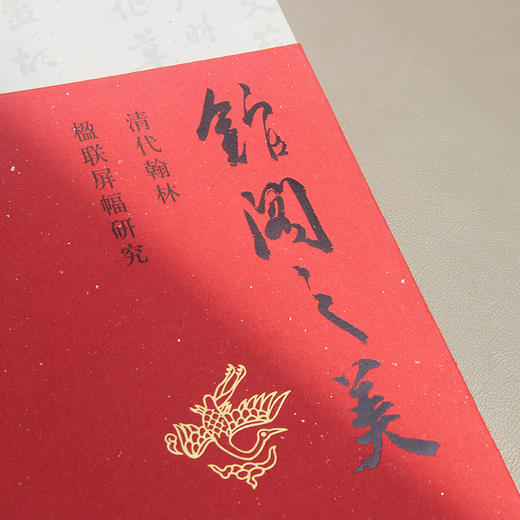 館阁之美
清代翰林
楹联屏幅研究